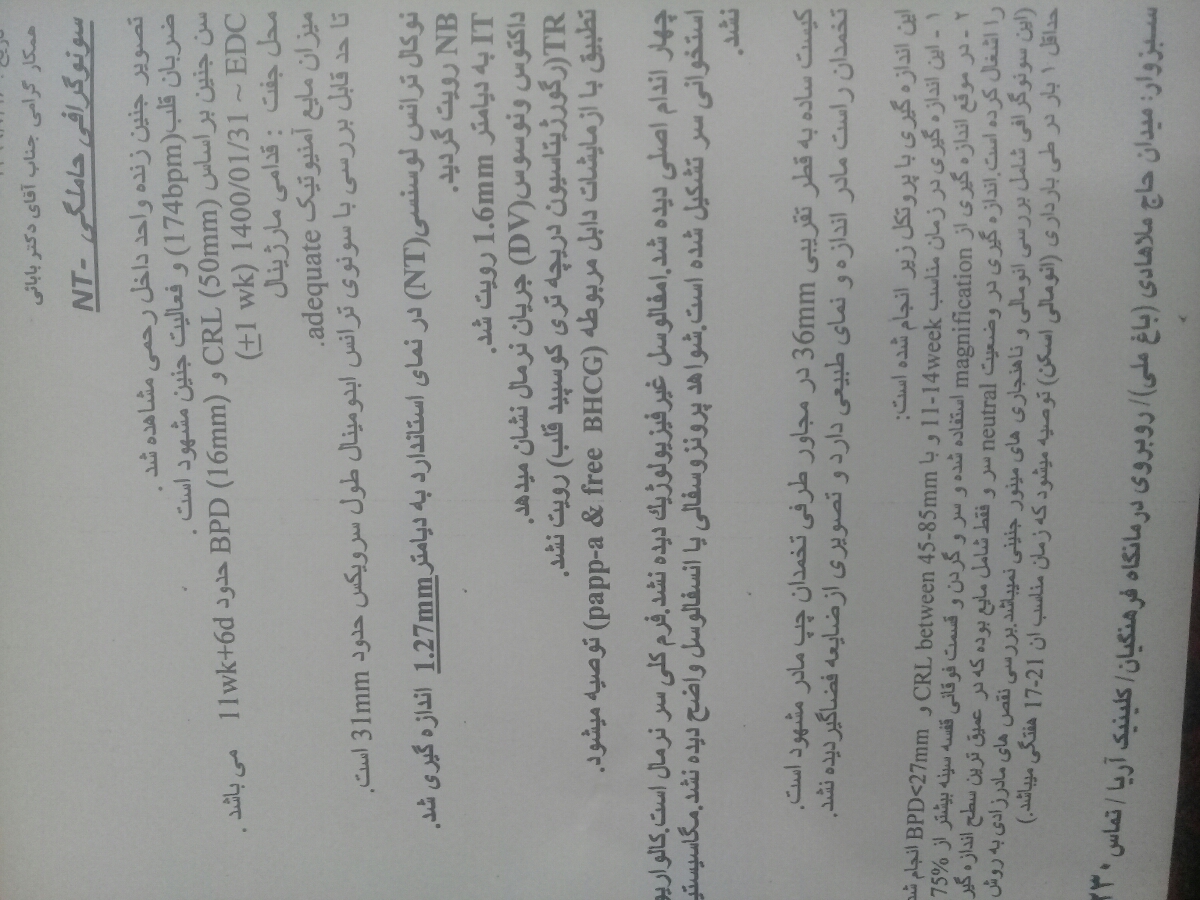 همکار گرامی جناب آقای دکتر بابائی
سونوگرافی حاملگی - NT
تصویر جنین زنده واحد داخل رحمی مشاهده شد .
ضربان قلب(174bpm) و فعالیت جنین مشهود است .
سن جنین براساس CRL (50mm) و BPD (16mm) حدود 11wk+6d می باشد .
(±1 wk) 1400/01/31 ~ EDC
محل جفت : قدامی مارژینال
میزان مایع آمنیوتیک adequate.
تا حد قابل بررسی با سونوی ترانس ابدومینال طول سرویکس حدود 31mm است.
نوکال ترانس لوسنسی(NT) در نمای استاندارد به دیامتر1.27mm اندازه گیری شد.
NB رویت گردید.
IT به دیامتر 1.6mm رویت شد.
داکتوس ونوسوس(DV) جریان نرمال نشان میدهد.
TR(رگورژیتاسیون دریچه تری کوسپید قلب) رویت نشد.
تطبیق با ازمایشات دابل مربوطه (papp-a & free BHCG) توصیه میشود.
چهار اندام اصلی دیده شد.امفالوسل غیرفیزیولوژیك دیده نشد.فرم کلی سر نرمال است.
استخوانی سر تشکیل شده است.شواهد پرونزوسفالی یا انسفالوسل واضح دیده نشد.
نشد.
کیست ساده به قطر تقریبی 36mm در مجاور طرفی تخمدان چپ مادر مشهود است.
تخمدان راست مادر اندازه و نمای طبیعی دارد و تصویری از ضایعه فضاگیر دیده نشد.
این اندازه گیری با پروتکل زیر انجام شده است:
۱ - این اندازه گیری در زمان مناسب 11-14week و با CRL between 45-85mm و BPD<27mm انجام شد
۲ - در موقع اندازه گیری از magnification استفاده شده و سر و گردن و قسمت فوقانی قفسه سینه بیشتر از 75%
را اشغال کرده است.اندازه گیری در وضعیت neutral سر و فقط شامل مایع بوده که در عمیق ترین سطح اندازه گیر
(این سونوگرافی شامل بررسی انومالی و ناهنجاری های مینور جنینی نمیباشد.بررسی نقص های مادرزادی به روش
حداقل ۱ بار در طی بارداری (انومالی اسکن) توصیه میشود که زمان مناسب ان 17-21 هفتگی میباشد.)
سبزوار: میدان حاج ملاهادی (باغ ملی)/ روبروی درمانگاه فرهنگیان/ کلینیک آریا / تماس ۲۳۰